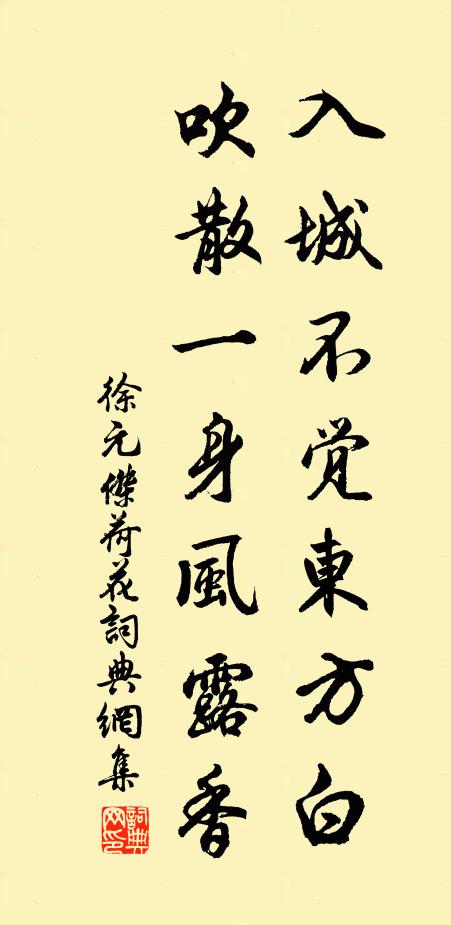 入城不觉東方白
吹散一身風露香
徐元傑荷花詞典網集
詞典
网印